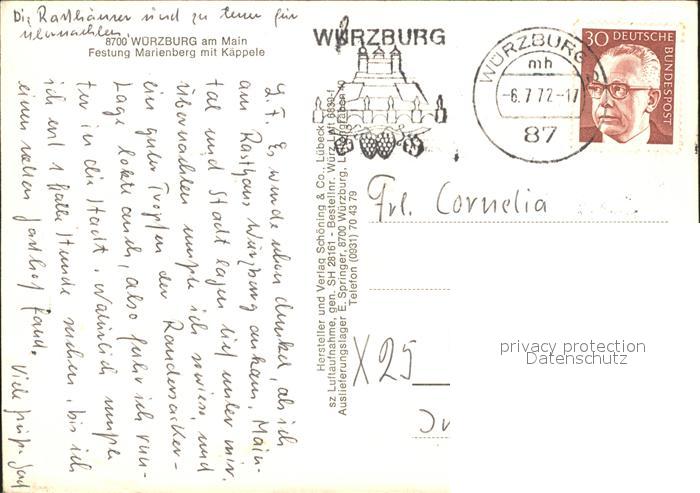 Die Rasthäuser sind zu teuer für
übernachten.
8700 WÜRZBURG am Main
Festung Marienberg mit Käppele
L. F. Es wurde schon dunkel, als ich
am Rasthaus Würzburg ankam. Main-
tal und Stadt lagen tief unter mir.
Übernachten mußte ich sowieso und
ein guter Tropfen der Randersacker-
Lage lockte auch, also fuhr ich run-
ter in die Stadt. Natürlich mußte
ich erst 1 Stunde suchen, bis ich
einen netten Gasthof fand.
Viele Grüße
Hersteller und Verlag Schöning & Co., Lübeck
sz Luftaufnahme, gen. SH 28161 - Bestellnr. Würz L
Auslieferungslager E. Springer, 8700 Würzburg,
Telefon (0931) 70 43 79
WÜRZBURG
WÜRZBURG
mh
-6.7.72-17
87
30 DEUTSCHE
BUNDESPOST
Frl. Cornelia
X 25
privacy protection
Datenschutz